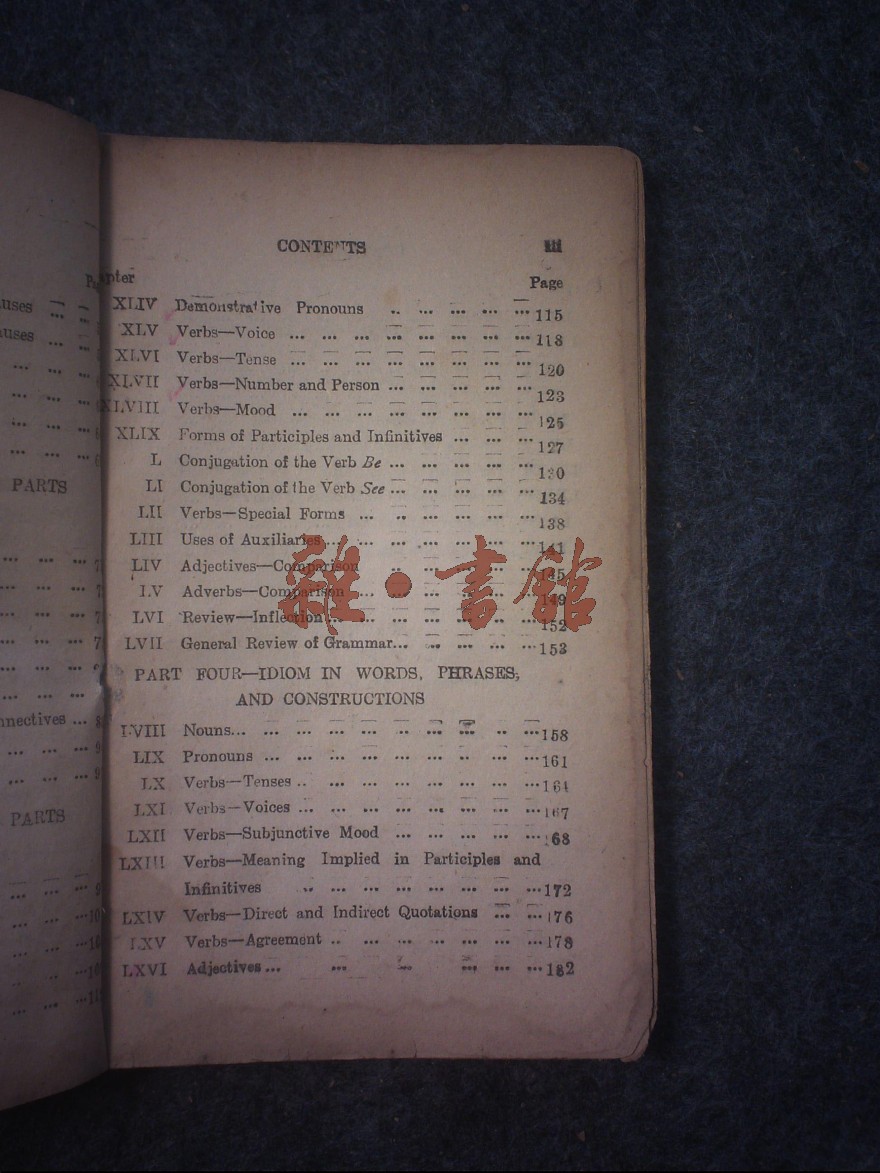 CONTENTS iii
Page
XLIV Demonstrative Pronouns ... 115
XLV Verbs—Voice ... 118
XLVI Verbs—Tense ... 120
XLVII Verbs—Number and Person ... 123
XLVIII Verbs—Mood ... 125
XLIX Forms of Participles and Infinitives ... 127
L Conjugation of the Verb Be ... 130
LI Conjugation of the Verb See ... 134
LII Verbs—Special Forms ... 138
LIII Uses of Auxiliaries ... 141
LIV Adjectives—Comparison ... 145
LV Adverbs—Comparison ... 149
LVI Review—Inflection ... 152
LVII General Review of Grammar ... 153
PART FOUR—IDIOM IN WORDS, PHRASES,
AND CONSTRUCTIONS
LVIII Nouns ... 158
LIX Pronouns ... 161
LX Verbs—Tenses ... 164
LXI Verbs—Voices ... 167
LXII Verbs—Subjunctive Mood ... 168
LXIII Verbs—Meaning Implied in Participles and
Infinitives ... 172
LXIV Verbs—Direct and Indirect Quotations ... 176
LXV Verbs—Agreement ... 178
LXVI Adjectives ... 182
PARTS
PARTS
雜·書館